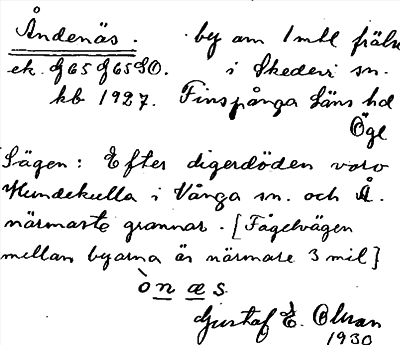 Åndenäs. by om 1 mtl frälse
ek. G65 G65SO. i Skedevi sn.
kb 1927. Finspånga läns hd
Ögl
Sägen: Efter digerdöden voro
Hundekulla i Vånga sn. och Å.
närmaste grannar. [Fågelvägen
mellan byarna är närmare 3 mil]
ònæs
Gustaf E. Olsson
1930